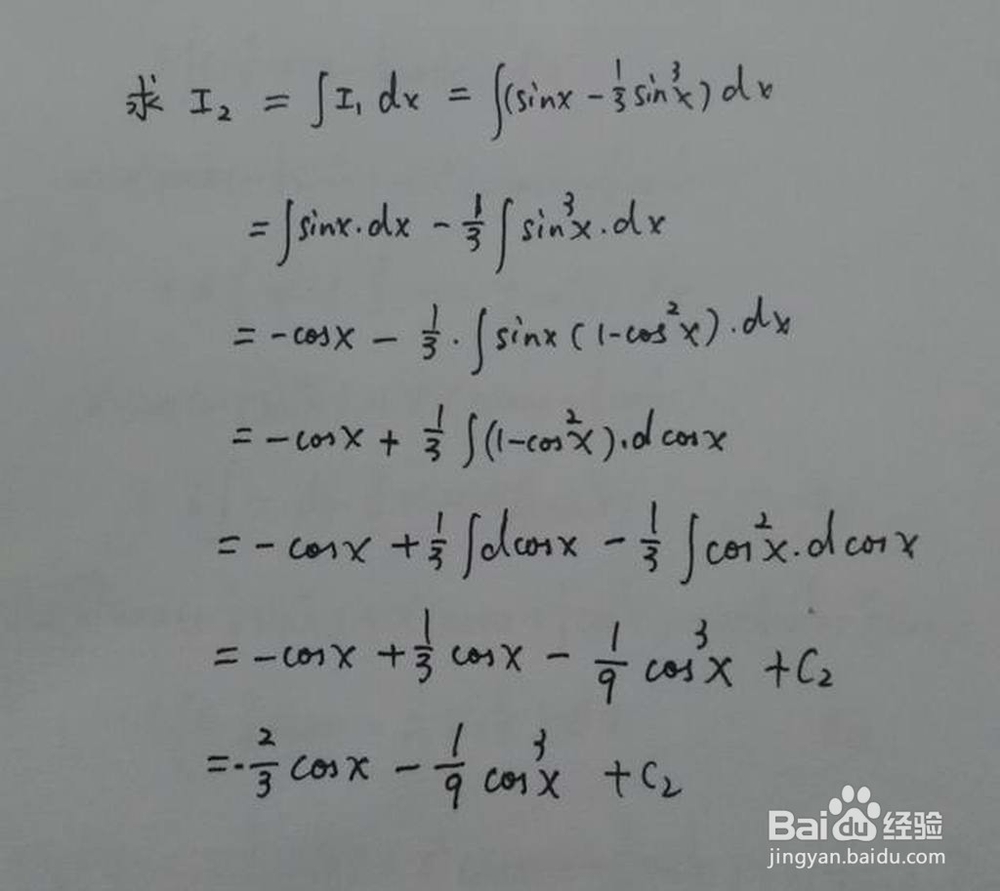 求 I₂ = ∫I₁ dx = ∫(sinx - 1/3 sin³x) dx
= ∫sinx·dx - 1/3 ∫sin³x·dx
= -cosx - 1/3 · ∫sinx(1-cos²x)·dx
= -cosx + 1/3 ∫(1-cos²x)·d cosx
= -cosx + 1/3 ∫dcosx - 1/3 ∫cos²x·d cosx
= -cosx + 1/3 cosx - 1/9 cos³x + C₂
= -2/3 cosx - 1/9 cos³x + C₂
Baidu经验
jingyan.baidu.com